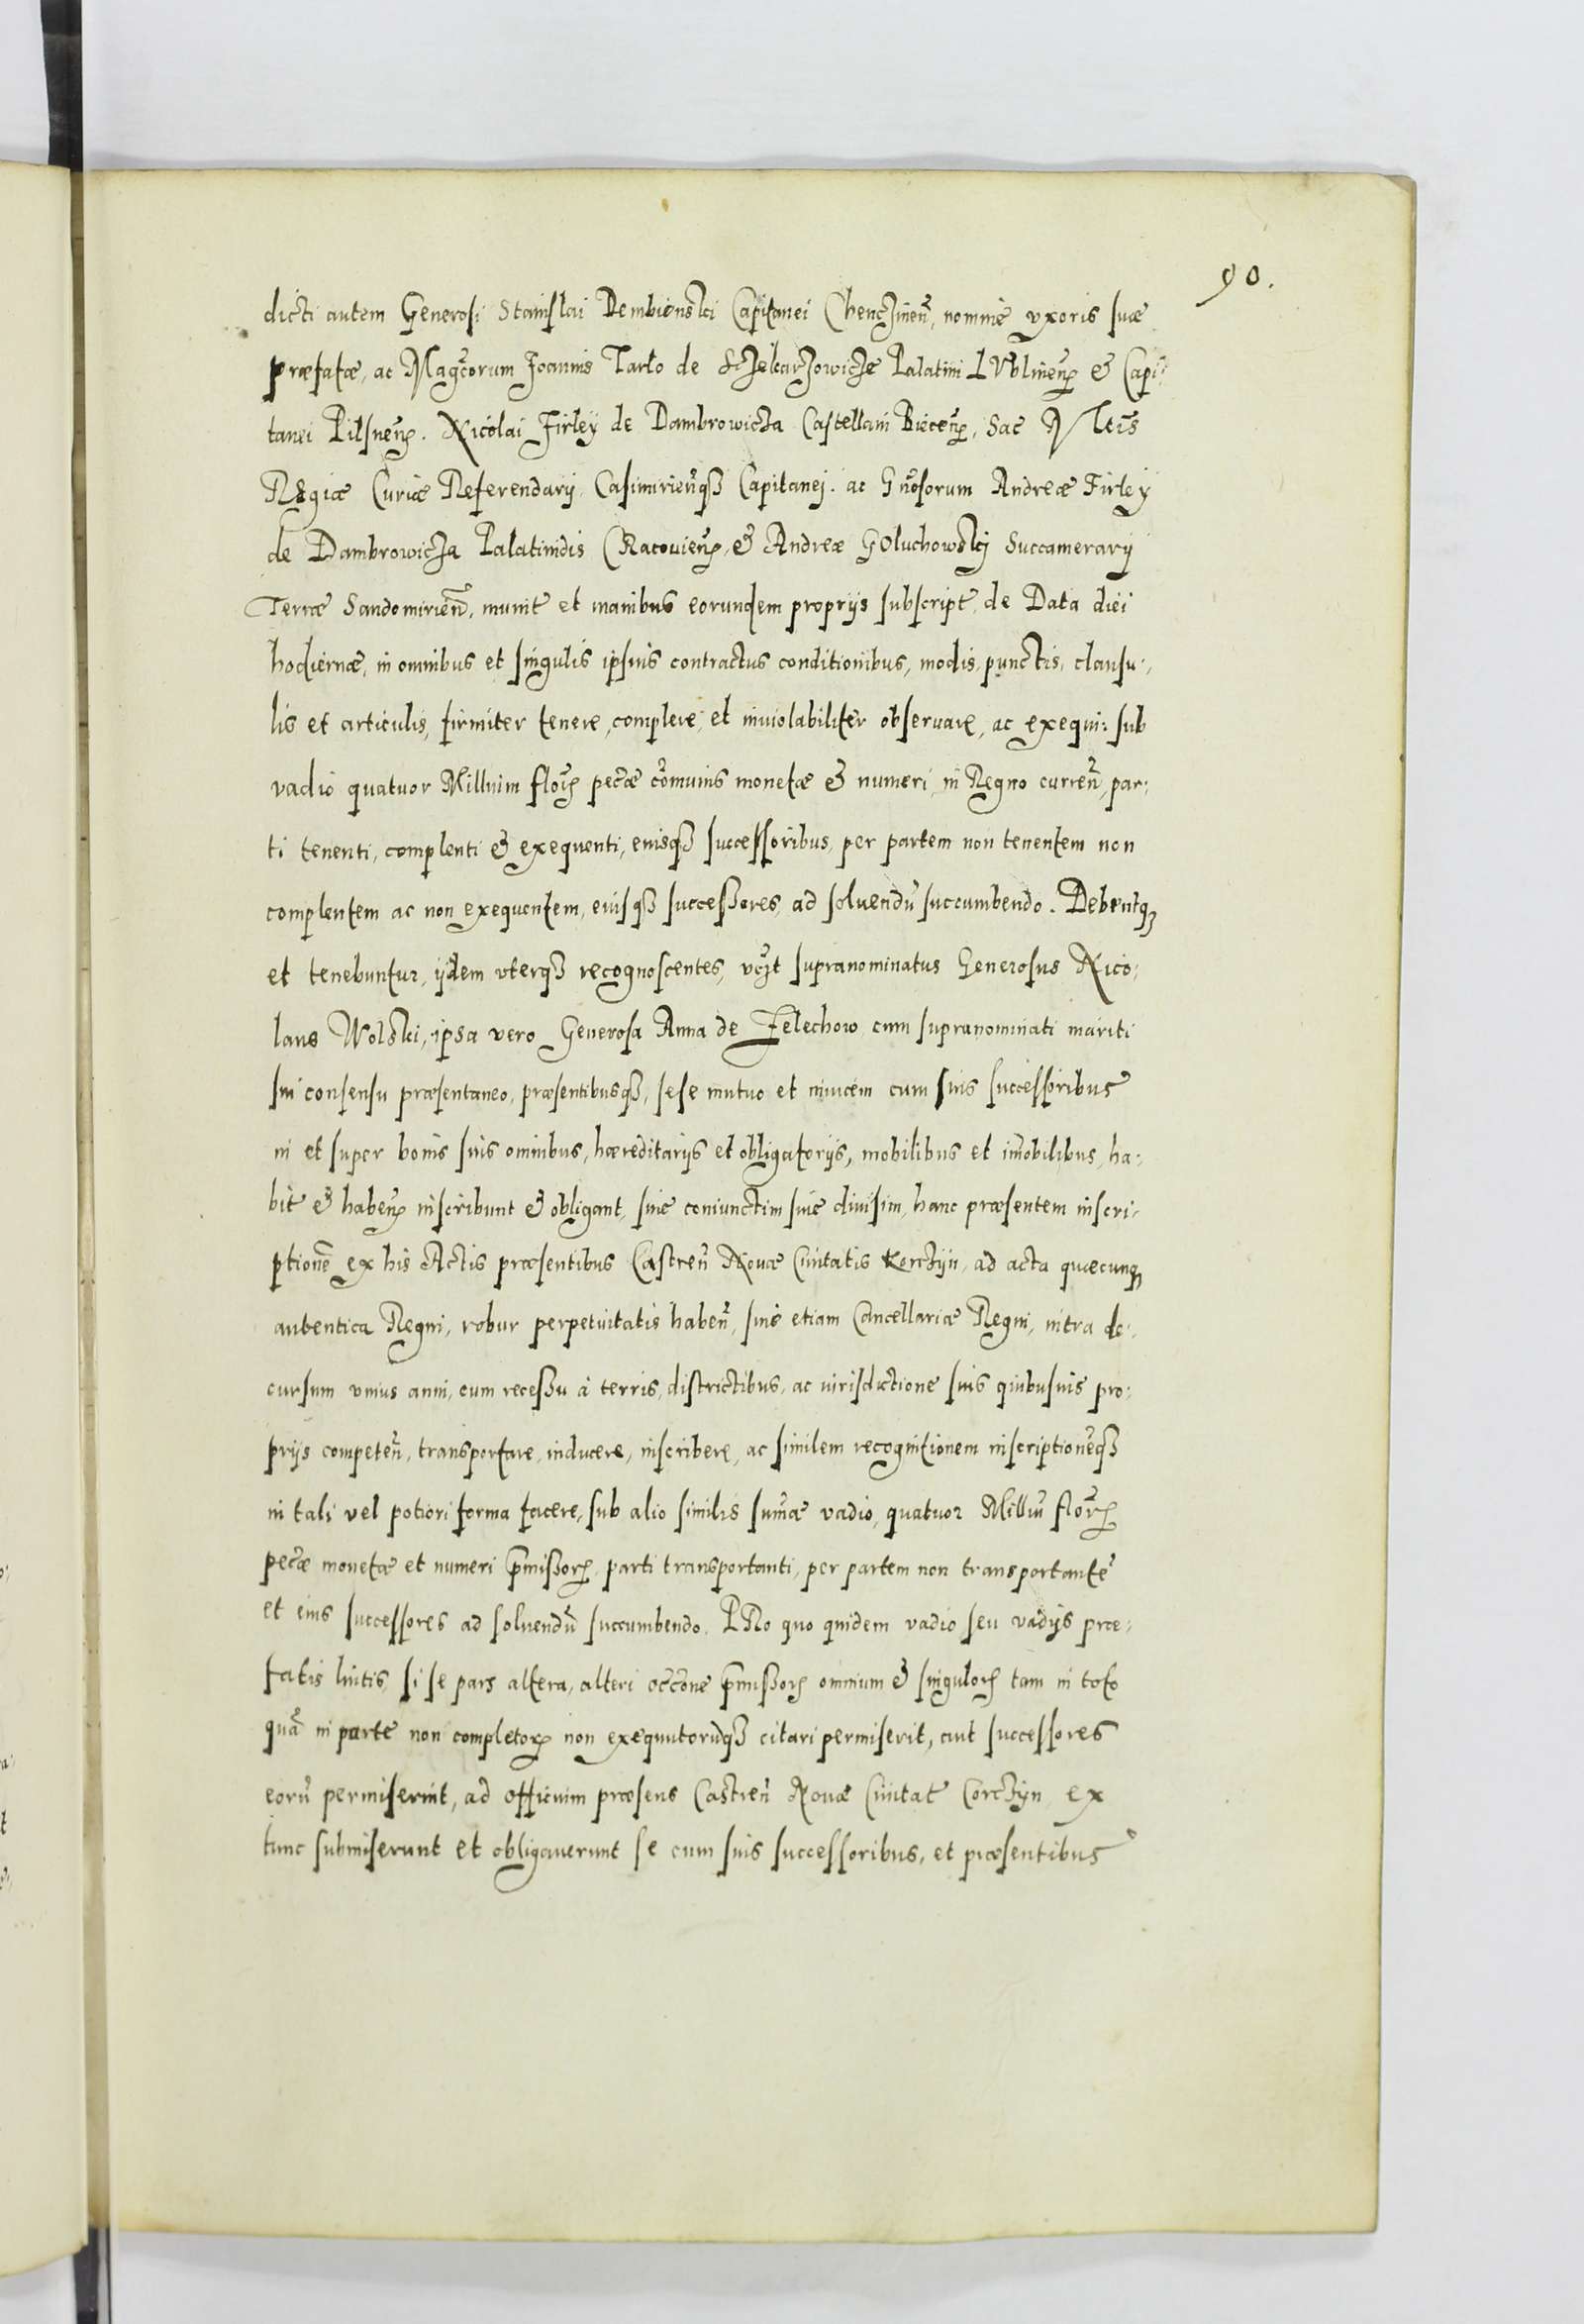 90.
dicti autem Generosi Stanislai Dembienski Capitanei Chenczinen̄, nomine uxoris suæ
præfatæ, ac Mag̃corum Joannis Tarło de Sczekarzowicze Palatini LVblinen̄ & Capi:
tanei Pilsnen̄. Nicolai Firley de Dambrowicza Castellani Biecen̄, Sac Mt̃eis
Regiæ Curiæ Referendarij Casimirien̄qȝ Capitanej. ac Gn̄osorum Andreæ Firley
de Dambrowicza Palatinidis CRacouien̄, & Andreæ GOluchowskj Succamerarij
Terræ Sandomirien̄, munit̃ et manibus eorundem proprijs subscript̃, de Data diei
hodiernæ, in omnibus et singulis ipsius contractus conditionibus, modis, punctis, clausu:
lis et articulis, firmiter tenere, complere, et inuiolabiliter obseruare, ac exequi: sub
vadio quatuor Millium flor̃ pec̃æ com̃unis monetæ & numeri, in Regno curren̄, par:
ti tenenti, complenti & exequenti, eiusqȝ successoribus, per partem non tenentem non
complentem ac non exequentem, eiusqȝ successores, ad soluendū succumbendo. Debentqȝ
et tenebuntur, ijdem uterqȝ recognoscentes, vc̃zt supranominatus Generosus Nico:
laus Wolski, ipsa vero Generosa Anna de Zelechow cum supranominati mariti
sui consensu præsentaneo, præsentibusqȝ, sese mutuo et inuicem cum suis successoribus
in et super bonis suis omnibus, hæreditarijs et obligatorijs, mobilibus et im̄obilibus, ha:
bit̃ & haben̄ inscribunt & obligant, siue coniunctim siue diuisim, hanc præsentem inscri:
ptionē ex his Actis præsentibus Castren̄ Nouæ Ciuitatis Korczijn, ad acta quæcunqȝ
autentica Regni, robur perpetuitatis haben̄, siue etiam Cancellariæ Regni, intra de:
cursum vnius anni, cum recessu à terris, districtibus, ac iurisdictione suis quibusuis pro:
prijs competen̄, transportare, inducere, inscribere, ac similem recognitionem inscriptionēqȝ
in tali vel potiori forma facere, sub alio similis sum̄æ vadio, quatuor Milliū flor̃
pec̃æ monetæ et numeri p̄missor̃, parti transportanti, per partem non transportantē
et eius successores ad soluendū succumbendo. PRo quo quidem vadio seu vadijs præ:
fatis luitis, si se pars altera, alteri occ̃one p̄missor̃ omnium & singulor̃ tam in toto
quā in parte non completor̃ non exequutorūqȝ citari permiserit, aut successores
eorū permiserint, ad officium præsens Castren̄ Nouæ Ciuitat̃ Corczijn, ex
tunc submiserunt et obligauerunt se cum suis successoribus, et præsentibus